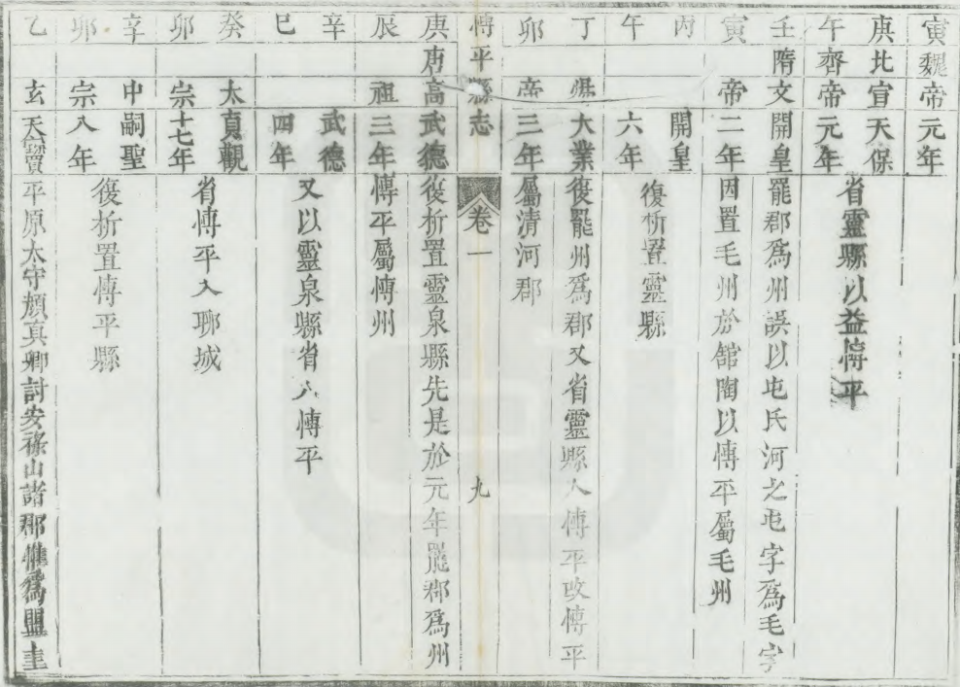 寅魏帝元年
庚北宣天保
午齊帝元年
省靈縣以益愽平
壬隋文開皇罷郡爲州誤以屯氏河之屯字爲毛字
寅帝二年因置毛州於舘陶以愽平屬毛州
丙開皇
午六年
復析置靈縣
丁煬大業復罷州爲郡又省靈縣入愽平改愽平
卯帝三年屬清河郡
愽平縣志卷一九
庚唐高武德復析置靈泉縣先是於元年罷郡爲州
辰祖三年愽平屬愽州
辛武德
巳四年
又以靈泉縣省入愽平
癸太貞觀
卯宗十七年
省愽平入聊城
辛中嗣聖
卯宗八年
復析置愽平縣
乙玄天寳平原太守顏真卿討安祿山諸郡推爲盟主